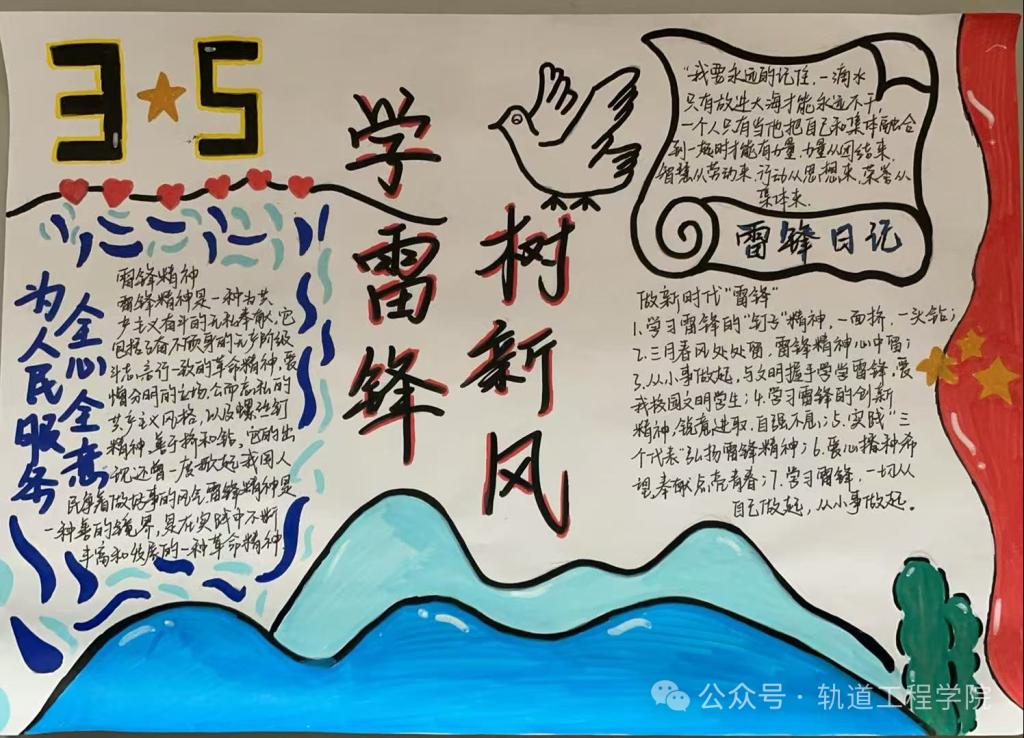 3★5
学雷锋
树新风
"我要永远的记住,一滴水
只有放进大海才能永远不干,
一个人只有当他把自己和集体融合
到一起时才能有力量.力量从团结来,
智慧从劳动来,行动从思想来,荣誉从
集体来.
雷锋日记
全心全意
为人民服务
雷锋精神
雷锋精神是一种为共
产主义奋斗的无私奉献,它
包括了奋不顾身的无产阶级
斗志,言行一致的革命精神,爱
憎分明的立场,公而忘私的
共产主义风格,以及螺丝钉
精神,善于挤和钻,它的出
现还曾一度掀起我国人
民争着做好事的风气,雷锋精神是
一种善的境界,是在实践中不断
丰富和发展的一种革命精神
做新时代"雷锋"
1.学习雷锋的"钉子"精神,一面挤,一头钻;
2.三月春风处处留,雷锋精神心中留;
3.从小事做起,与文明握手学学雷锋,爱
我校园文明学生;4.学习雷锋的创新
精神,锐意进取,自强不息;5.实践"三
个代表"弘扬雷锋精神;6.爱心播种希
望,奉献点亮青春;7.学习雷锋,一切从
自己做起,从小事做起。
公众号·轨道工程学院